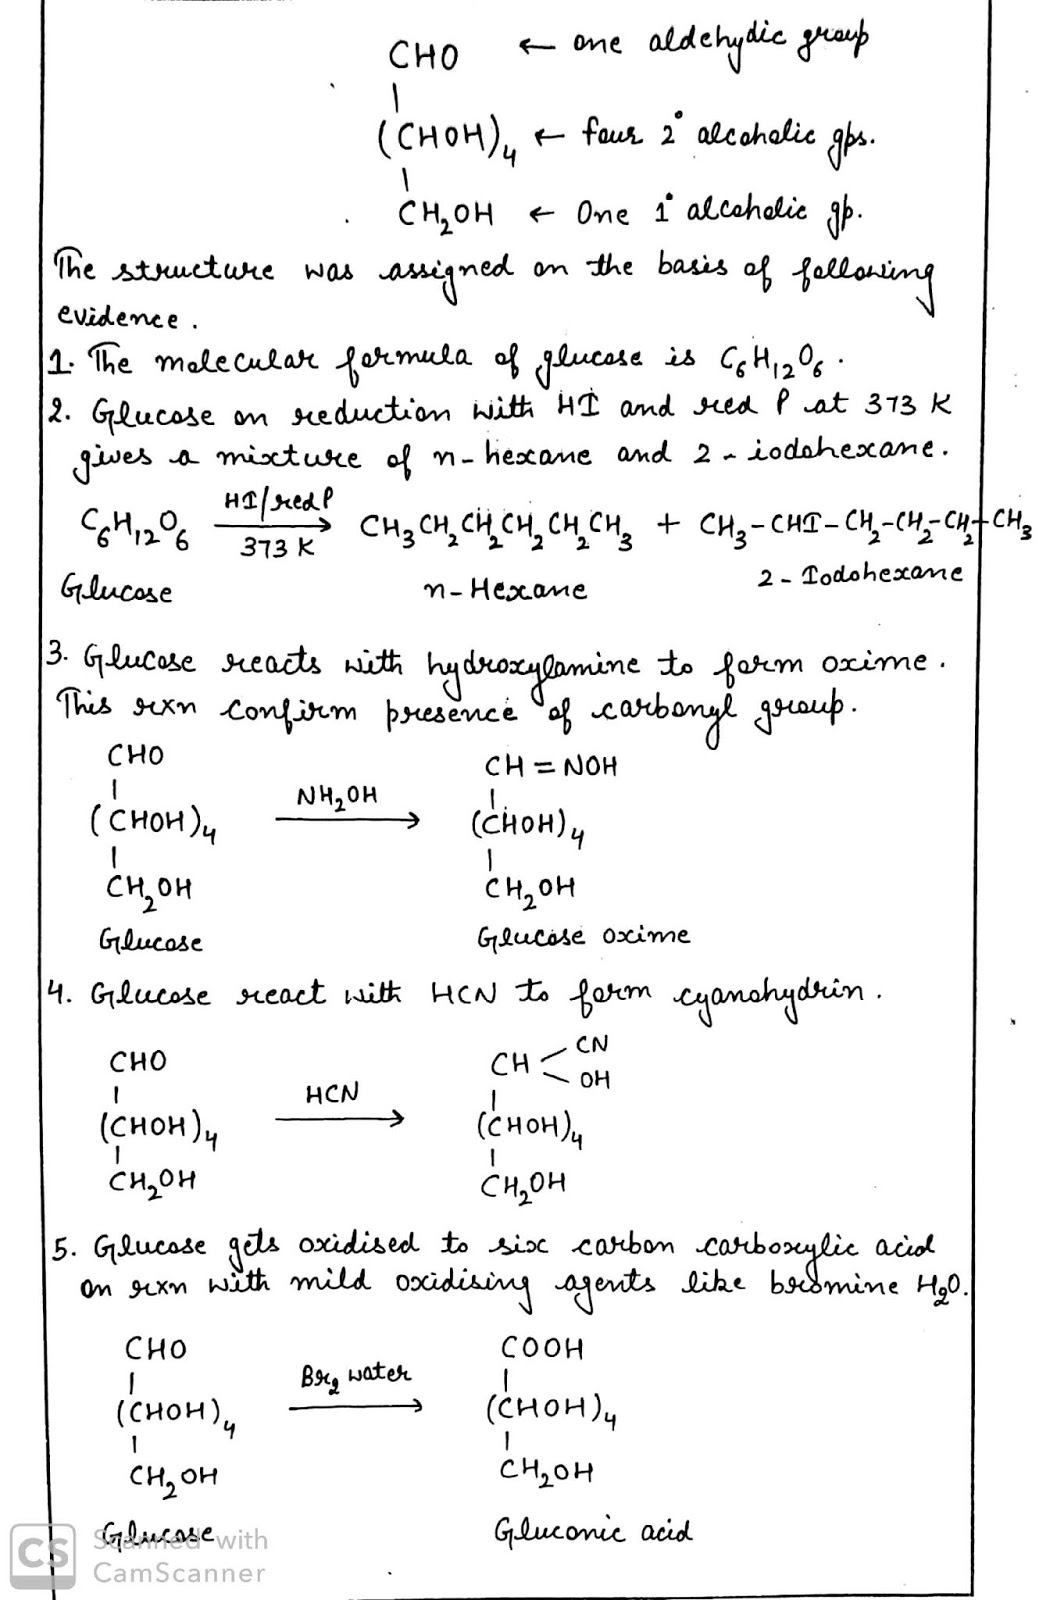 CHO ← one aldehydic group
|
(CHOH)₄ ← four 2° alcoholic gps.
|
CH₂OH ← One 1° alcoholic gp.
The structure was assigned on the basis of following
evidence.
1. The molecular formula of glucose is C₆H₁₂O₆.
2. Glucose on reduction with HI and red P at 373 K
gives a mixture of n-hexane and 2-iodohexane.
C₆H₁₂O₆ HI/red P → 373 K CH₃CH₂CH₂CH₂CH₂CH₃ + CH₃-CHI-CH₂-CH₂-CH₂-CH₃
Glucose n-Hexane 2-Iodohexane
3. Glucose reacts with hydroxylamine to form oxime.
This rxn confirm presence of carbonyl group.
CHO CH=NOH
| |
(CHOH)₄ NH₂OH → (CHOH)₄
| |
CH₂OH CH₂OH
Glucose Glucose oxime
4. Glucose react with HCN to form cyanohydrin.
CHO CH < CN OH
| |
(CHOH)₄ HCN → (CHOH)₄
| |
CH₂OH CH₂OH
5. Glucose gets oxidised to six carbon carboxylic acid
on rxn with mild oxidising agents like bromine H₂O.
CHO COOH
| |
(CHOH)₄ Br₂ water → (CHOH)₄
| |
CH₂OH CH₂OH
Glucose Gluconic acid
CS Scanned with
CamScanner